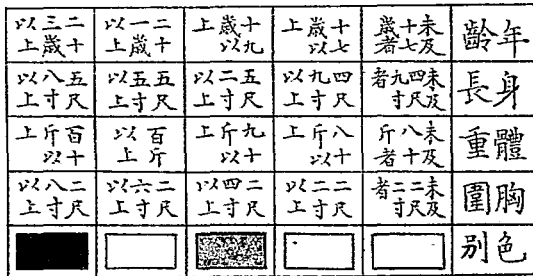 年齡 未及十七歲者 十七歲以上 十九歲以上 二十一歲以上 二十三歲以上
身長 未及四尺九寸者 四尺九寸以上 五尺二寸以上 五尺五寸以上 五尺八寸以上
體重 未及八十斤者 八十斤以上 九十斤以上 百斤以上 百十斤以上
胸圍 未及二尺二寸者 二尺二寸以上 二尺四寸以上 二尺六寸以上 二尺八寸以上
色別